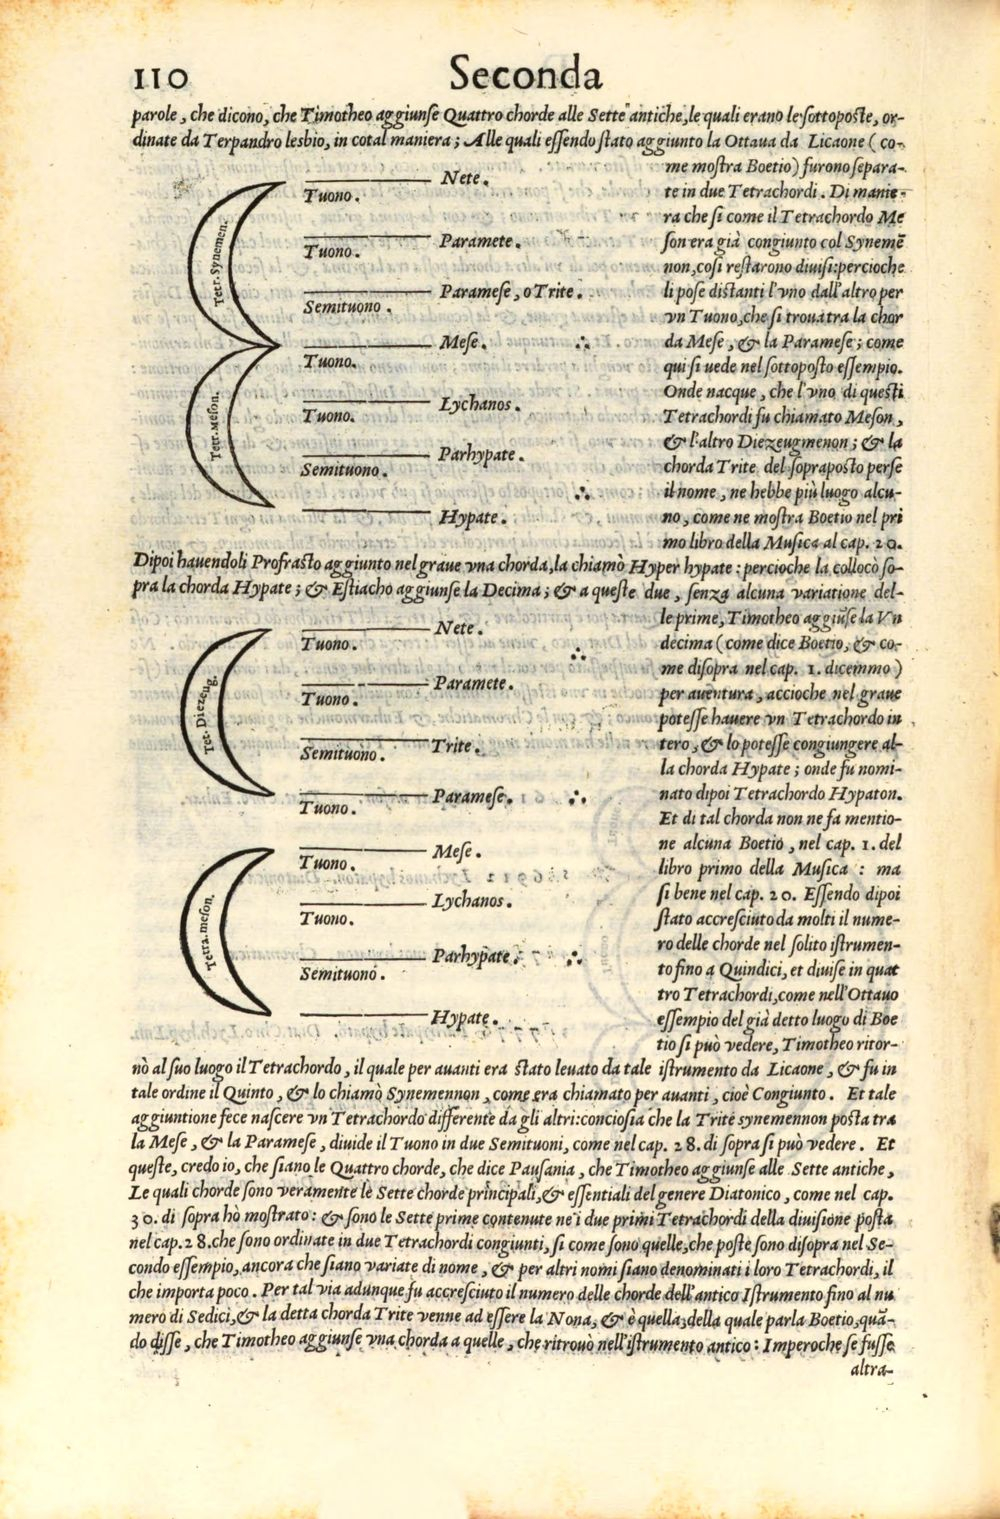 110 Seconda
parole, che dicono, che Timotheo aggiunse Quattro chorde alle Sette antiche, le quali erano le sottoposte, or-
dinate da Terpandro lesbio, in cotal maniera; Alle quali essendo stato aggiunto la Ottaua da Licaone (co-
me mostra Boetio) furono separa-
te in due Tetrachordi. Di manie-
ra che si come il Tetrachordo Me
son era già congiunto col Synemē
non, cosi restarono diuisi: percioche
li pose distanti l'vno dall'altro per
vn Tuono, che si troua tra la chor
da Mese, & la Paramese; come
qui si uede nel sottoposto essempio.
Onde nacque, che l'vno di questi
Tetrachordi fu chiamato Meson,
& l'altro Diezeugmenon; & la
chorda Trite del sopraposto perse
il nome, ne hebbe più luogo alcu-
no, come ne mostra Boetio nel pri
mo libro della Musica al cap. 20.
Tetr. Synemen.
Tetr. Meson.
Nete.
Tuono.
Paramete.
Tuono.
Paramese, o Trite.
Semituono.
Mese.
Tuono.
Lychanos.
Tuono.
Parhypate.
Semituono.
Hypate.
Dipoi hauendoli Profrasto aggiunto nel graue vna chorda, la chiamò Hyper hypate: percioche la collocò so-
pra la chorda Hypate; & Estiacho aggiunse la Decima; & a queste due, senza alcuna variatione del-
le prime, Timotheo aggiūse la Vn
decima (come dice Boetio, & co-
me disopra nel cap. 1. dicemmo)
per auentura, accioche nel graue
potesse hauere vn Tetrachordo in
tero, & lo potesse congiungere al-
la chorda Hypate; onde fu nomi-
nato dipoi Tetrachordo Hypaton.
Et di tal chorda non ne fa mentio-
ne alcuna Boetio, nel cap. 1. del
libro primo della Musica: ma
si bene nel cap. 20. Essendo dipoi
stato accresciuto da molti il nume-
ro delle chorde nel solito istrumen-
to fino a Quindici, et diuise in quat
tro Tetrachordi, come nell'Ottauo
essempio del già detto luogo di Boe
tio si può vedere, Timotheo ritor-
Tet. Diezeug.
Nete.
Tuono.
Paramete.
Tuono.
Trite.
Semituono.
Paramese.
Tuono.
Tetra. meson.
Mese.
Tuono.
Lychanos.
Tuono.
Parhypate.
Semituono.
Hypate.
nò al suo luogo il Tetrachordo, il quale per auanti era stato leuato da tale istrumento da Licaone, & fu in
tale ordine il Quinto, & lo chiamò Synemennon, come era chiamato per auanti, cioè Congiunto. Et tale
aggiuntione fece nascere vn Tetrachordo differente da gli altri: conciosia che la Trite synemennon posta tra
la Mese, & la Paramese, diuide il Tuono in due Semituoni, come nel cap. 28. di sopra si può vedere. Et
queste, credo io, che siano le Quattro chorde, che dice Pausania, che Timotheo aggiunse alle Sette antiche,
Le quali chorde sono veramente le Sette chorde principali, & essentiali del genere Diatonico, come nel cap.
30. di sopra hò mostrato: & sono le Sette prime contenute ne i due primi Tetrachordi della diuisione posta
nel cap. 28. che sono ordinate in due Tetrachordi congiunti, si come sono quelle, che poste sono disopra nel Se-
condo essempio, ancora che siano variate di nome, & per altri nomi siano denominati i loro Tetrachordi, il
che importa poco. Per tal via adunque fu accresciuto il numero delle chorde dell'antico Istrumento fino al nu
mero di Sedici, & la detta chorda Trite venne ad essere la Nona, & è quella, della quale parla Boetio, quā-
do disse, che Timotheo aggiunse vna chorda a quelle, che ritrouò nell'istrumento antico: Imperoche se fusse
altra-